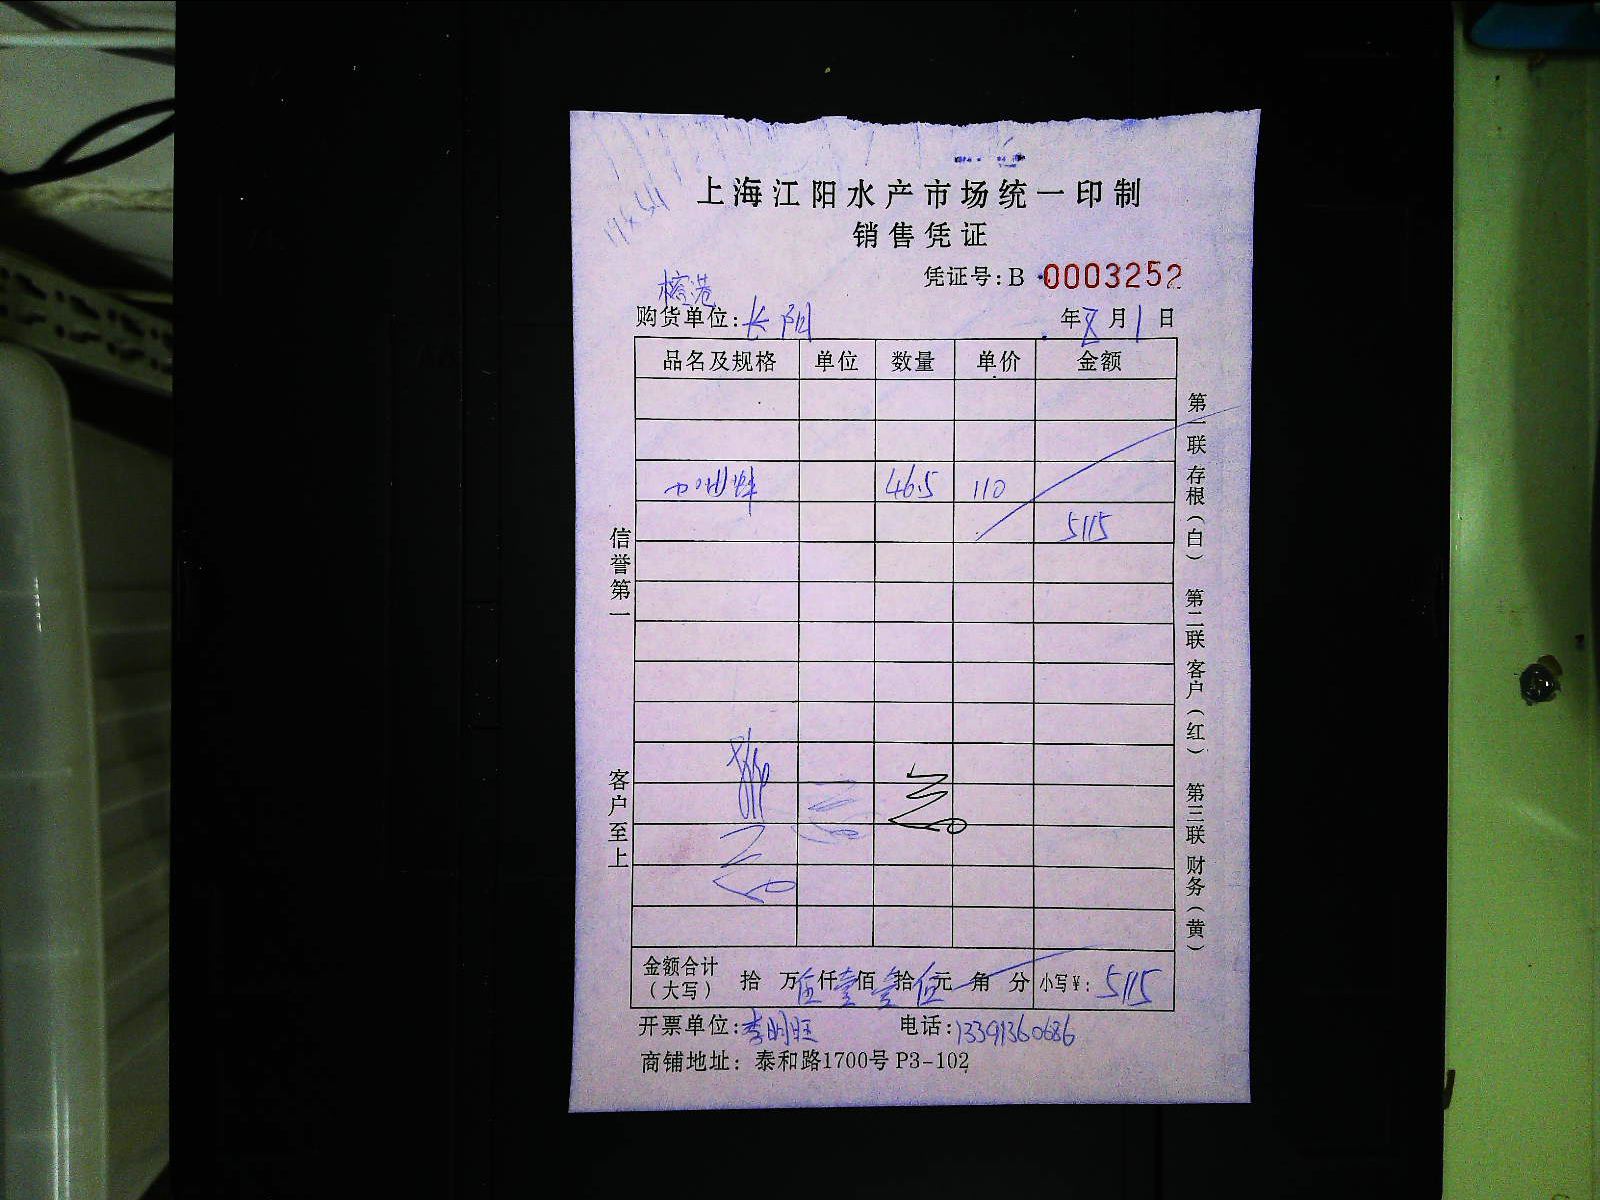 上海江阳水产市场统一印制
销售凭证
凭证号:B 0003252
购货单位:长阳
年8月1日
品名及规格 单位 数量 单价 金额
46.5 110
5115
信誉第一
客户至上
第一联 存根（白） 第二联 客户（红） 第三联 财务（黄）
金额合计（大写） 拾 万伍仟壹佰壹拾伍元 角 分 小写¥: 5115
开票单位:李明旺 电话:13391360686
商铺地址: 泰和路1700号 P3-102